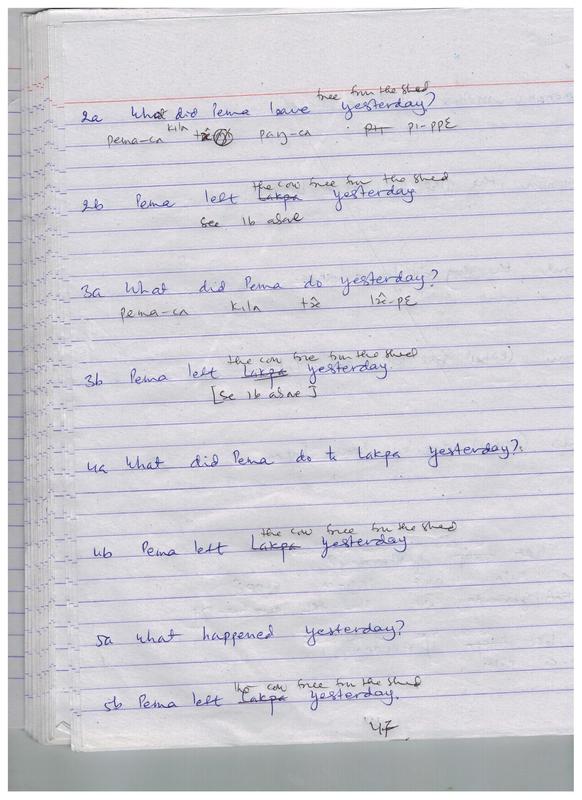 free from the shed
2a What did Pema leave yesterday?
pema-cʌ kilʌ pʌŋ-cʌ pi-ppɛ
the cow free from the shed
2b Pema left Lakpa yesterday
see 1b above
3a What did Pema do yesterday?
pema-cʌ kilʌ tɜ̂ lɜ̂-pɛ
the cow free from the shed
3b Pema left Lakpa yesterday
[see 1b above]
4a What did Pema do to Lakpa yesterday?
the cow free from the shed
4b Pema left Lakpa yesterday
5a What happened yesterday?
the cow free from the shed
5b Pema left Lakpa yesterday.
47